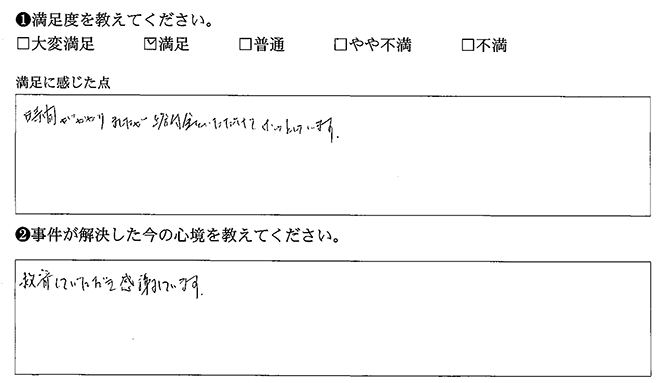 ❶満足度を教えてください。
□大変満足 ☑満足 □普通 □やや不満 □不満
満足に感じた点
時間がかかりましたが 賠償金をいただけて ホッとしています。
❷事件が解決した今の心境を教えてください。
救済していただき感謝しています。